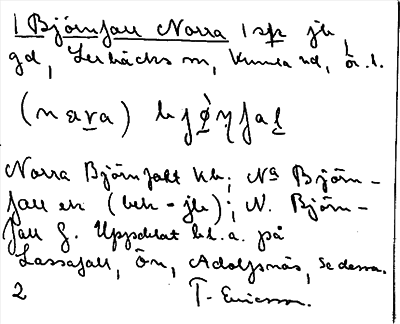 1 Björnfall Norra 1 sp jb,
gd, Lerbäcks sn, Kumla hd, Ör. l.
(nɑra) bjø̀ŋfal
Norra Björnfallt kb; Na Björn-
fall ek (bek - jb); N. Björn-
fall G. Uppdelat bl. a. på
Lassafall, Ön, Adolfsnäs, se dessa.
2 T. Ericsson.